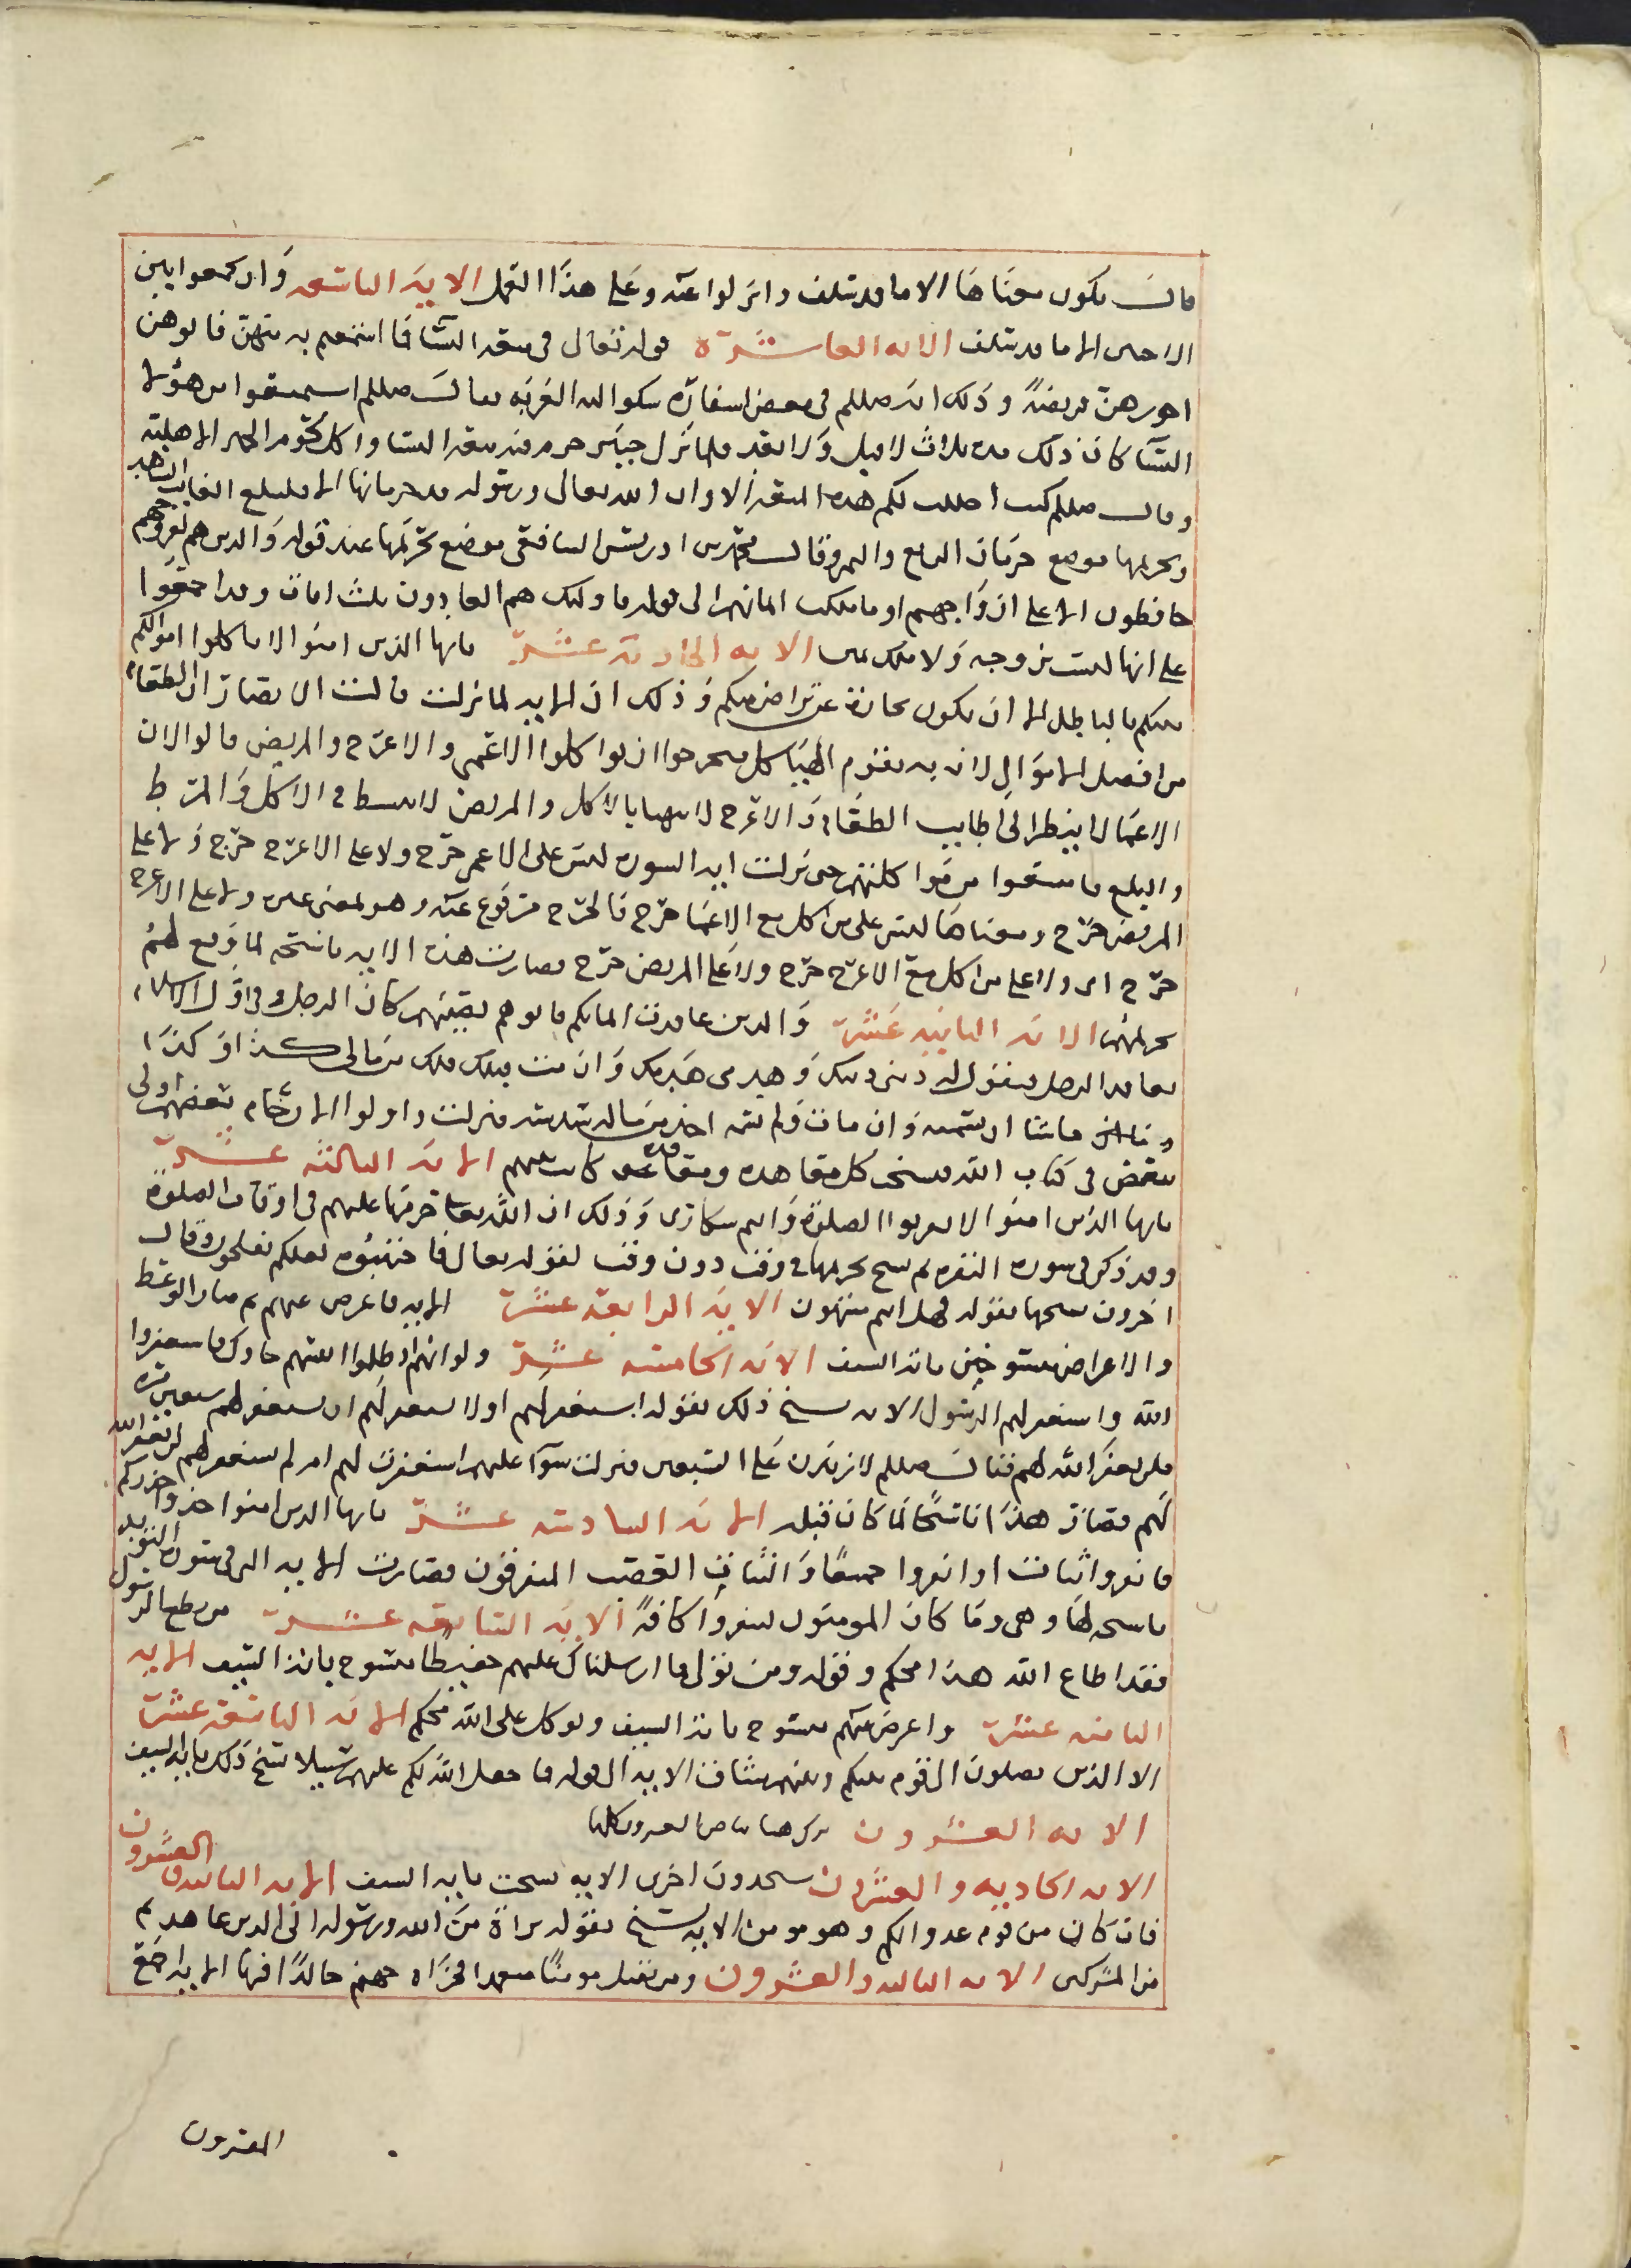 قال يكون معناها الا ما قد سلف وانزلوا عنه وعلى هذا العمل الاية التاسعه وان تجمعوا بين
الاختين الا ما قد سلف الايه العاشرة قوله تعالى في متعه النسا فما استمتعتم به منهن فاتوهن
اجورهن فريضة وذلك انه صللم في بعض اسفاره شكوا اليه الغربه فقال صللم استمتعوا من هؤلا
النسا كان ذلك مده ثلاث لا قبل ولا بعد فلما نزل خيبر حرم فيه متعه النسا واكل لحوم الحمر الاهليه
وقال صللم كنت احللت لكم هذه المتعه الا وان الله تعالى ورسوله قد حرمانها الا فليبلغ الشاهد الغايب
وتحريمها موضع حرمان الربع والثمن وقال محمد بن ادريس الشافعي موضع تحريمها عند قوله والذين هم لفروجهم
حافظون الا على ازواجهم او ما ملكت ايمانهم الى قوله فاولئك هم العادون بلث امات وقد اجمعوا
على انها ليست بزوجه ولا ملك يمين الايه الحادية عشرة يايها الذين امنوا لا تاكلوا اموالكم
بينكم بالباطل الا ان تكون تجارة عن تراض منكم وذلك ان الايه لما نزلت قالت الانصار ان الطعام
من افضل الاموال لان به تقوم الهياكل فتحرجوا ان يواكلوا الاعمى والاعرج والمريض قالوا لان
الاعما لا ينظر الى اطايب الطعام والاعرج لا يتهيا بالاكل والمريض لا يبسط في الاكل والمرط
والبلع فامتنعوا من مواكلتهم حتى نزلت ايه السوره ليس على الاعمى حرج ولا على الاعرج حرج ولا على
المريض حرج ومعناها ليس على من اكل مع الاعما حرج فالحرج مرفوع عنه وهو لمعنى غيره ولا على الاعرج
حرج اى ولا على من اكل مع الاعرج حرج ولا على المريض حرج فصارت هذه الايه ناسخه لما وقع لهم
تحريمهم الايه الثانيه عشرة والذين عاقدت ايمانكم فاتوهم نصيبهم كان الرجل في اول الاسلام
يعاقد الرجل فيقول له دمي دمك وهدمي هدمك وان مت قبلك فلك من مالي كذا او كذا
ما شا ان يسميه وان مات ولم يسم اخذ من ماله سدسه فنزلت واولوا الارحام بعضهم اولى
ببعض في كتاب الله فنسخت كل معاهده ومعاقده كانت بينهم الاية الثالثه عشرة
يايها الذين امنوا لا تقربوا الصلوة وانتم سكارى وذلك ان الله تعالى حرمها عليهم في اوقات الصلوة
وقد ذكر في سوره البقره ثم نسخ تحريمها في وقت دون وقت لقوله تعالى فاجتنبوه لعلكم تفلحون وقال
اخرون نسخها بقوله فهل انتم منتهون الاية الرابعة عشرة الايه فاعرض عنهم ثم صار الوعظ
والاعراض منسوخين باية السيف الاية الخامسه عشرة ولو انهم اذ ظلموا انفسهم جاوك فاستغفروا
الله واستغفر لهم الرسول الايه نسخ ذلك بقوله استغفر لهم او لا تستغفر لهم ان تستغفر لهم سبعين مره
فلن يغفر الله لهم فقال صللم لازيدن على السبعين فنزلت سوآ عليهم استغفرت لهم ام لم تستغفر لهم لن يغفر الله
لهم فصار هذا ناسخا لما كان قبله الاية السادسه عشرة يايها الذين امنوا خذوا حذركم
فانفروا ثبات او انفروا جميعا والثبات العصب المتفرقون فصارت الايه التي في سوره التوبه
ناسخه لها وهي وما كان المومنون لينفروا كافة الاية السابعه عشرة من يطع الرسول
فقد اطاع الله هذا محكم وقوله ومن تولى فما ارسلناك عليهم حفيظا منسوخ باية السيف الايه
الثامنه عشرة واعرض عنهم منسوخ باية السيف وتوكل على الله محكم الاية التاسعه عشرة
الا الذين يصلون الى قوم بينكم وبينهم ميثاق الايه الى قوله فما جعل الله لكم عليهم سبيلا نسخ ذلك باية السيف
الايه العشرون
الايه الحاديه والعشرون ستجدون اخرين الايه نسخت بايه السيف الايه الثانيه والعشرون
فان كان من قوم عدو لكم وهو مومن الايه نسخ بقوله براة من الله ورسوله الى الذين عاهدتم
من المشركين الايه الثالثه والعشرون ومن يقتل مومنا متعمدا فجزاه جهنم خالدا فيها الايه اجمع
المفسرون